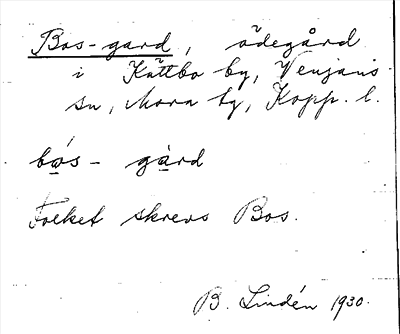 Bos-gard, ödegård
i Kättbo by, Venjans
sn, Mora tg, Kopp. l.
bo̲s- gà̲rd
Folket skrevs Bos.
B. Lindén 1930.